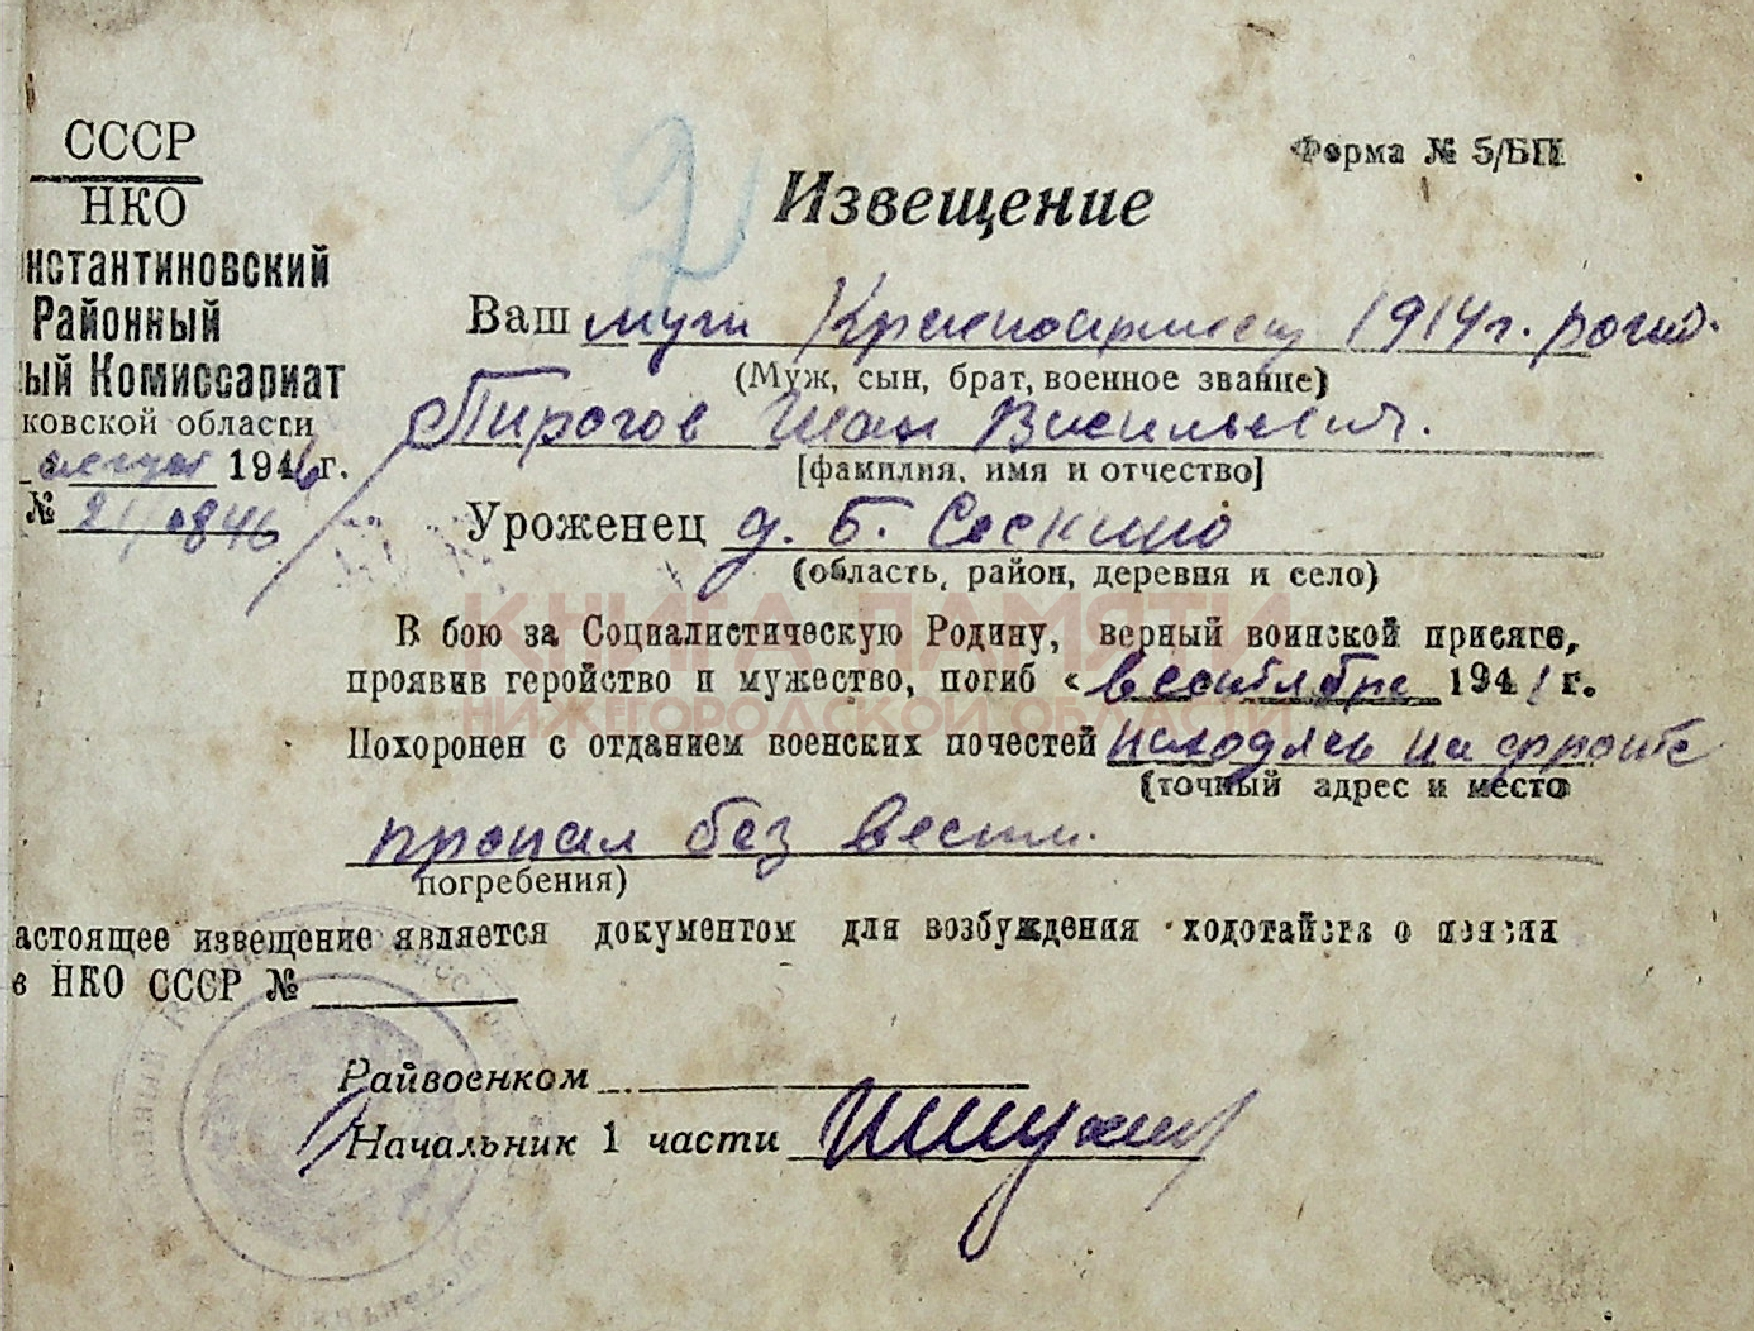 СССР
НКО
нстантиновский
Районный
ый Комиссариат
ковской области
август 1946 г.
№ 21/0846
Форма № 5/БП
Извещение
Ваш муж Красноармеец 1914 г. рожд.
(Муж, сын, брат, военное звание)
Пирогов Иван Васильевич.
[фамилия, имя и отчество]
Уроженец д. Б. Сескино
(область, район, деревня и село)
В бою за Социалистическую Родину, верный воинской присяге,
КНИГА ПАМЯТИ
проявив геройство и мужество, погиб « в сентябре 1941 г.
НИЖЕГОРОДСКОЙ ОБЛАСТИ
Похоронен с отданием военских почестей находясь на фронте
(точный адрес и место
пропал без вести.
погребения)
астоящее извещение является документом для возбуждения ходотайств о пенсии
в НКО СССР №
Райвоенком
Начальник 1 части